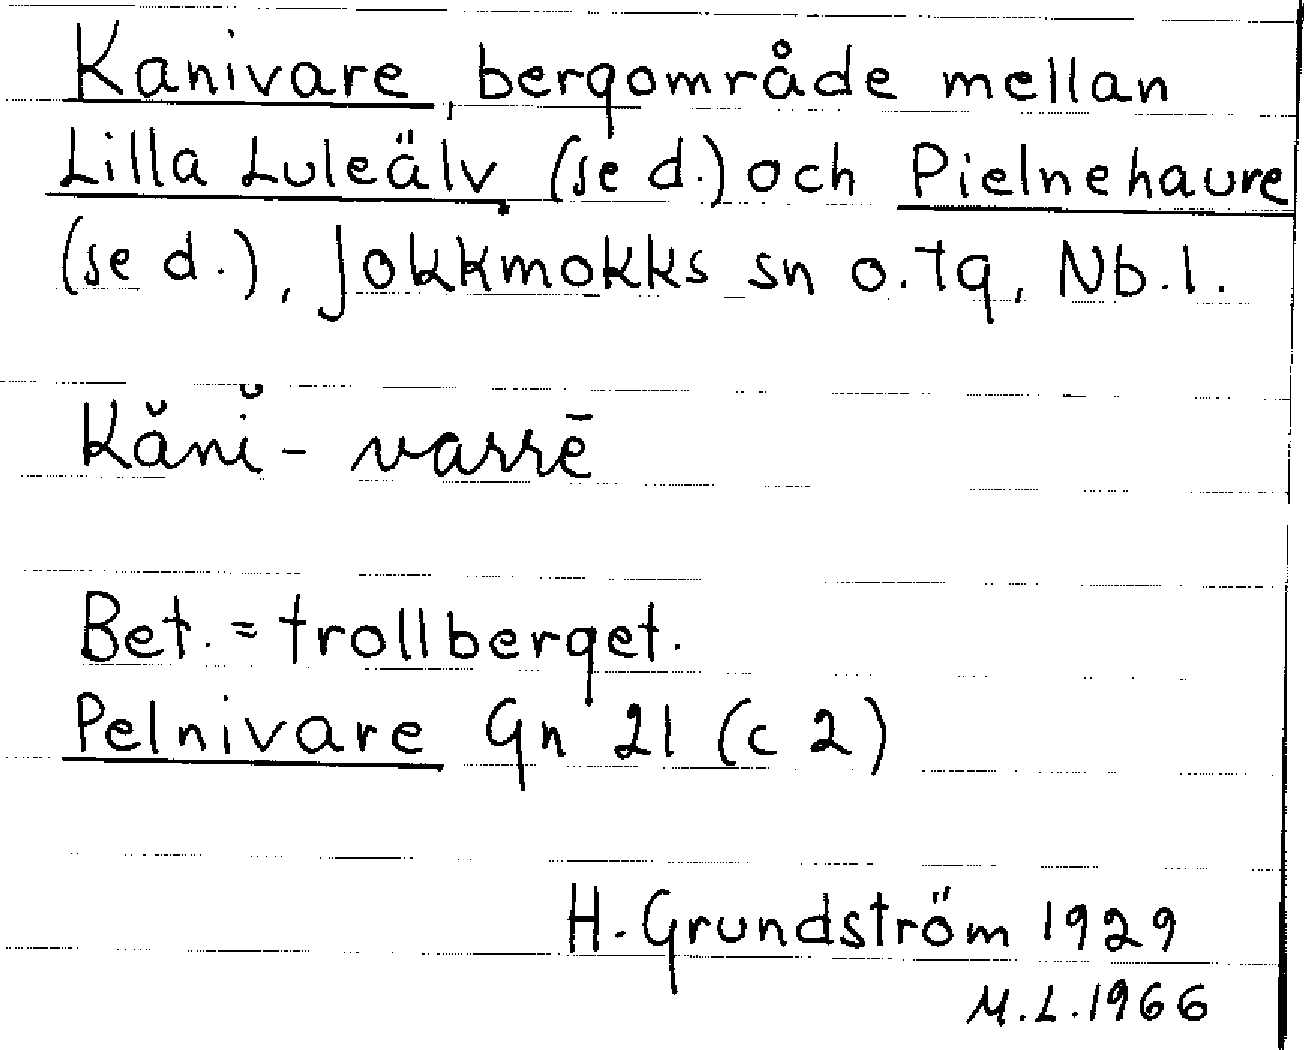 Kanivare, bergområde mellan
Lilla Luleälv (se d.) och Pielnehaure
(se d.), Jokkmokks sn o. tg, Nb. l.
Kănĭ - varrē
Bet. = trollberget.
Pelnivare Gn 21 (c 2)
H. Grundström 1929
M. L. 1966